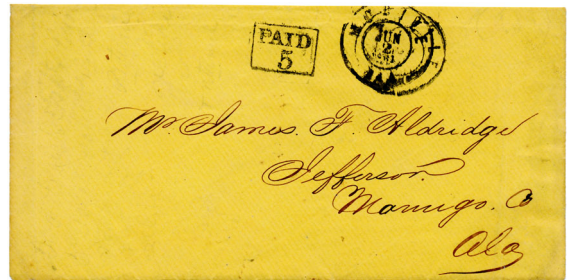 PAID
5
MOBILE
JUN
2
1861
ALA
Mr. James. F. Aldridge
Jefferson.
Marengo. Co
Ala